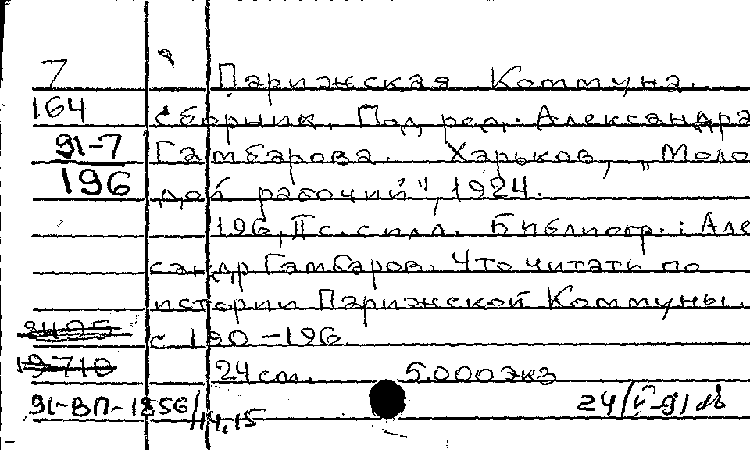 7 Парижская Коммуна.
164 сборник. Под ред. Александра
91-7 Гамбарова. Харьков, „Моло
196 дой рабочий", 1924.
196, II с. с илл. Библиогр.: Але
сандр Гамбаров. Что читать по
истории Парижской Коммуны.
с 190-196.
19710 24 см. 5.000 экз
91-ВП-1856/14,15 24/V-91